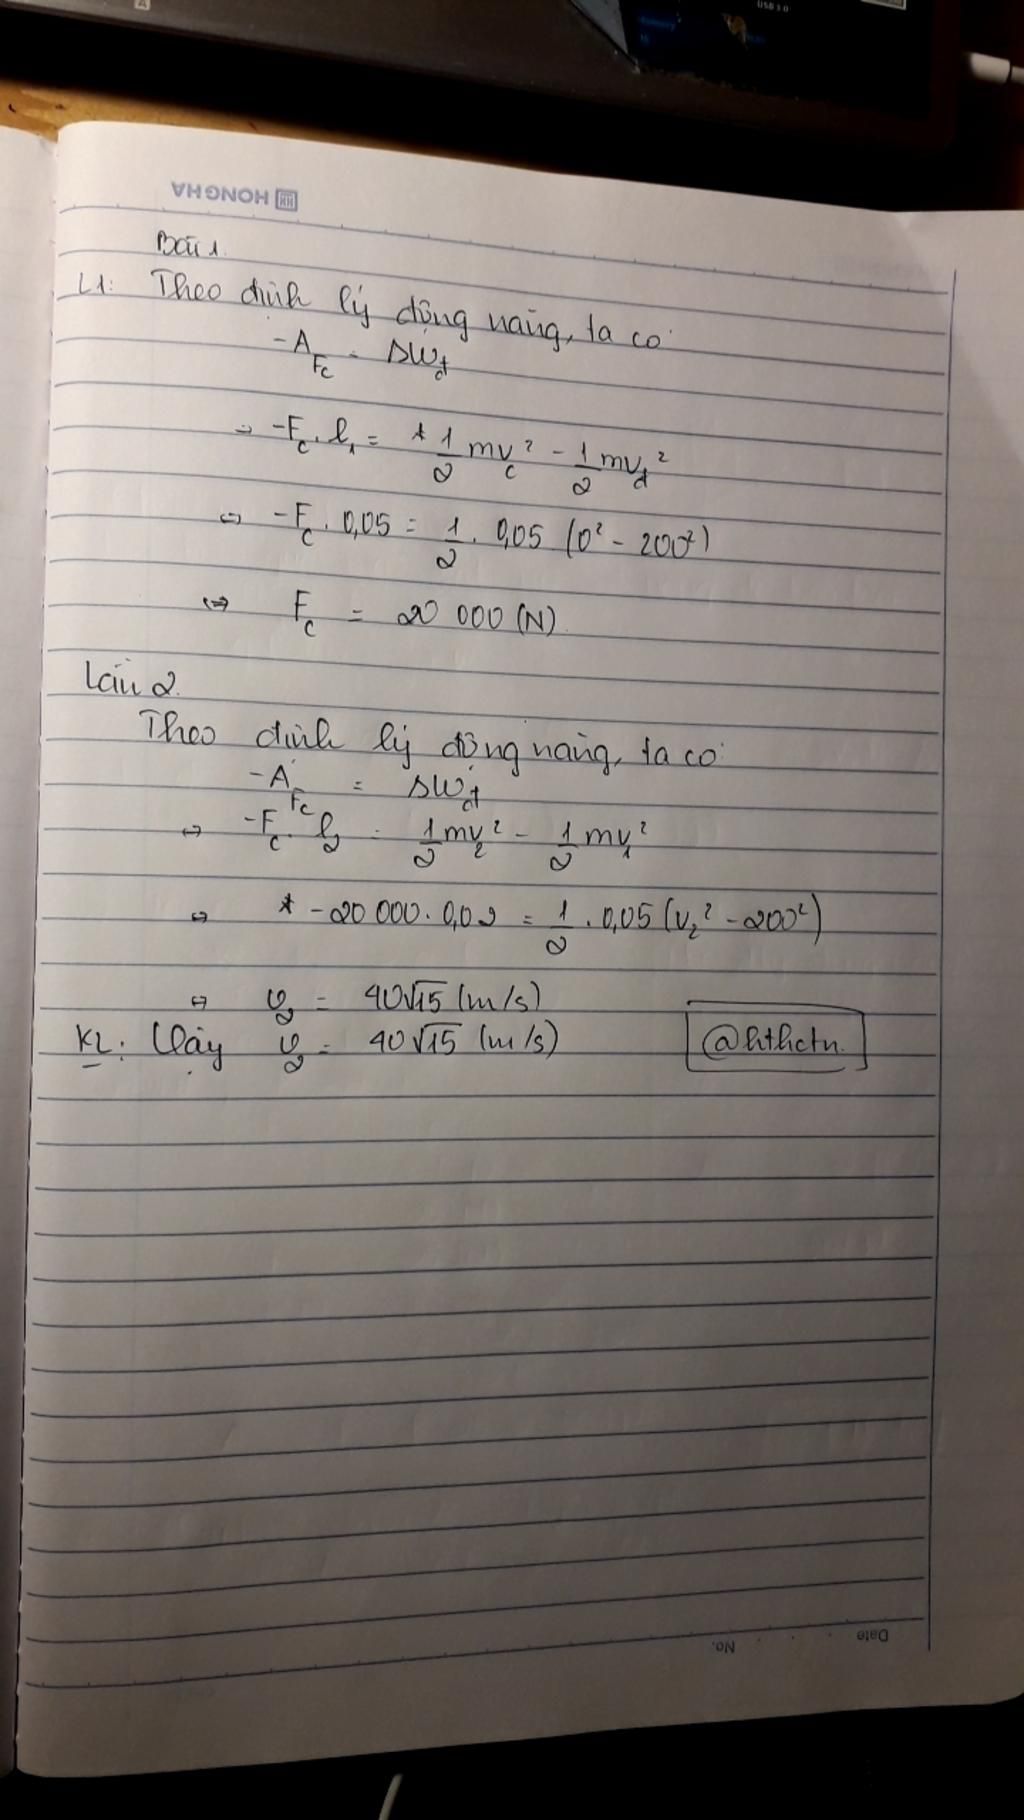 USB 3.0
HONG HA
Bài 1.
L1: Theo định lý động năng, ta có:
-A_Fc = ΔW_đ
⇔ -F_c . l_1 = 1/2 mv_c² - 1/2 mv_đ²
⇔ -F_c . 0,05 = 1/2 . 0,05 (0² - 200²)
⇔ F_c = 20 000 (N)
Lần 2.
Theo định lý động năng, ta có:
-A_Fc = ΔW_đ
⇔ -F_c . l_2 = 1/2 mv_2² - 1/2 mv_1²
⇔ -20 000 . 0,02 = 1/2 . 0,05 (v_2² - 200²)
⇔ v_2 = 40√15 (m/s)
KL: Vậy v_2 = 40√15 (m/s)
@hthctn.
No.
Date